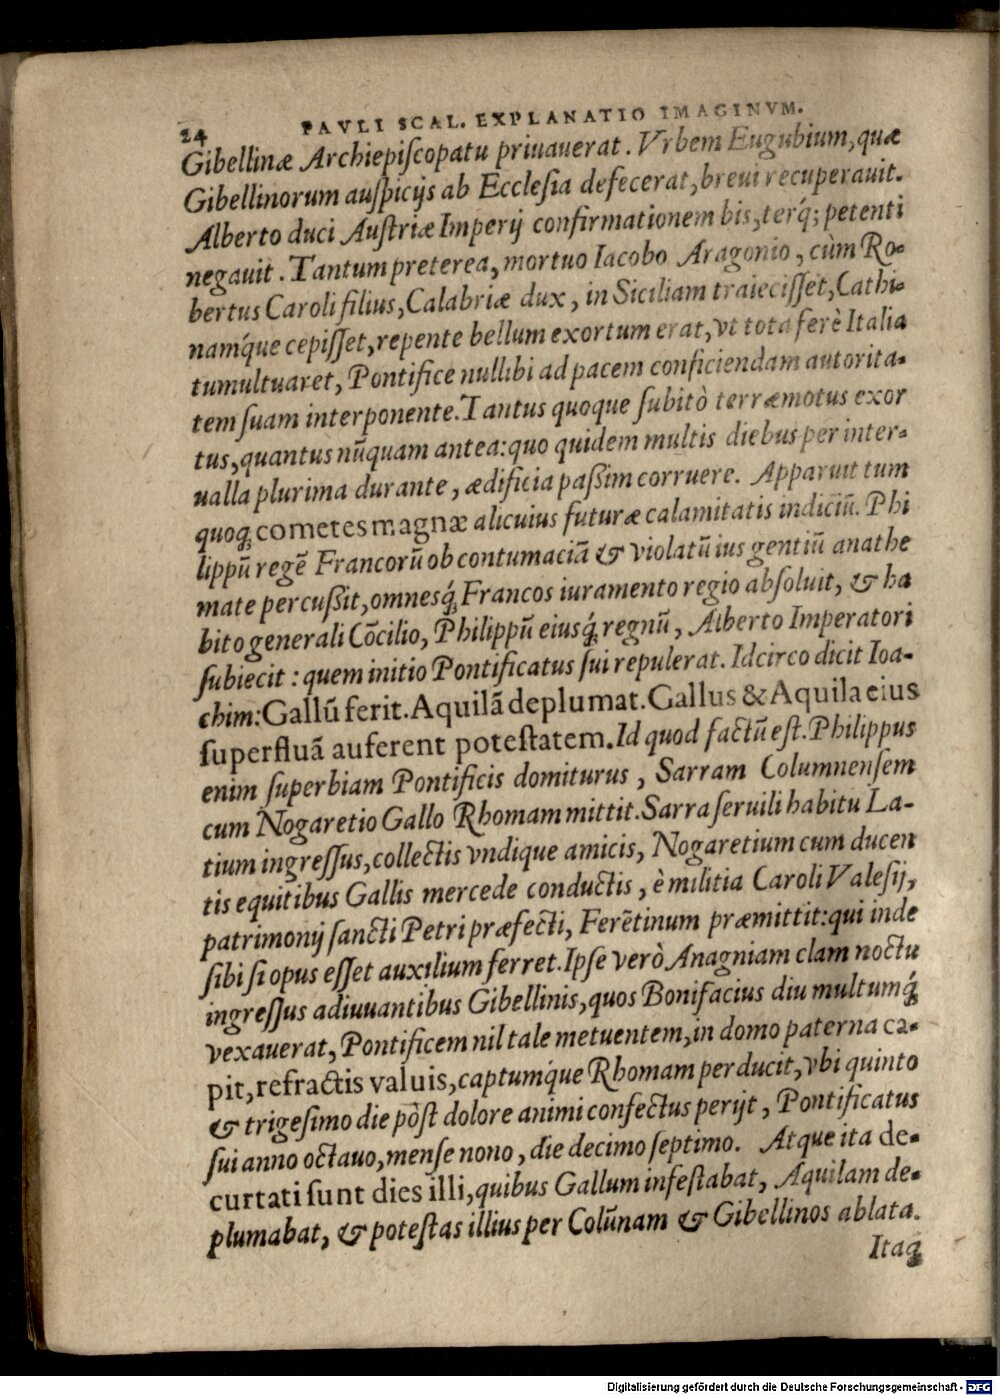 24 PAVLI SCAL. EXPLANATIO IMAGINVM.
Gibellinæ Archiepiſcopatu priuauerat. Vrbem Eugubium, quæ
Gibellinorum auſpicijs ab Eccleſia defecerat, breui recuperauit.
Alberto duci Auſtriæ Imperij confirmationem bis, terq́; petenti
negauit. Tantum preterea, mortuo Iacobo Aragonio, cùm Ro-
bertus Caroli filius, Calabriæ dux, in Siciliam traieciſſet, Cathi-
namq́ue cepiſſet, repente bellum exortum erat, vt tota ferè Italia
tumultuaret, Pontifice nullibi ad pacem conficiendam autorita-
tem ſuam interponente. Tantus quoque ſubitò terræmotus exor
tus, quantus nũquam antea: quo quidem multis diebus per inter-
ualla plurima durante, ædificia paßim corruere. Apparuit tum
quoq; cometes magnæ alicuius futuræ calamitatis indiciũ. Phi
lippũ regẽ Francorũ ob contumaciã & violatũ ius gentiũ anathe
mate percußit, omnesq́; Francos iuramento regio abſoluit, & ha
bito generali Cõcilio, Philippũ eiusq́; regnũ, Alberto Imperatori
ſubiecit: quem initio Pontificatus ſui repulerat. Idcirco dicit Ioa-
chim: Gallũ ferit. Aquilã deplumat. Gallus & Aquila eius
ſuperfluã auferent poteſtatem. Id quod factũ eſt. Philippus
enim ſuperbiam Pontificis domiturus, Sarram Columnenſem
cum Nogaretio Gallo Rhomam mittit. Sarra ſeruili habitu La-
tium ingreſſus, collectis vndique amicis, Nogaretium cum ducen
tis equitibus Gallis mercede conductis, è militia Caroli Valeſij,
patrimonij ſancti Petri præfecti, Ferẽtinum præmittit: qui inde
ſibi ſi opus eſſet auxilium ferret. Ipſe verò Anagniam clam noctu
ingreſſus adiuuantibus Gibellinis, quos Bonifacius diu multumq́;
vexauerat, Pontificem nil tale metuentem, in domo paterna ca-
pit, refractis valuis, captumq́ue Rhomam perducit, vbi quinto
& trigeſimo die pòſt dolore animi confectus perijt, Pontificatus
ſui anno octauo, menſe nono, die decimo ſeptimo. Atque ita de-
curtati ſunt dies illi, quibus Gallum infeſtabat, Aquilam de-
plumabat, & poteſtas illius per Colũnam & Gibellinos ablata.
Itaq;
Digitalisierung gefördert durch die Deutsche Forschungsgemeinschaft - DFG